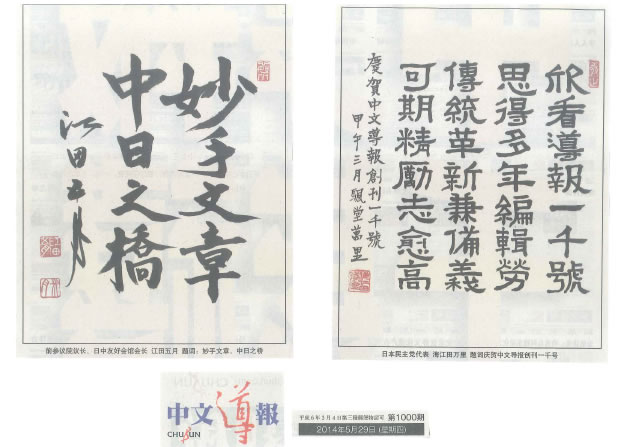 妙手文章
中日之橋
江田五月
前参议院议长、日中友好会馆会长 江田五月 题词：妙手文章、中日之桥
欣看導報一千號
思得多年編輯勞
傳統革新兼備義
可期精勵志愈高
慶賀中文導報創刊一千號
甲午三月 顕堂萬里
日本民主党代表 海江田万里 题词庆贺中文导报创刊一千号
中文導報
CHUBUN
平成6年2月4日第三種郵便物認可 第1000期
2014年5月29日 (星期四)